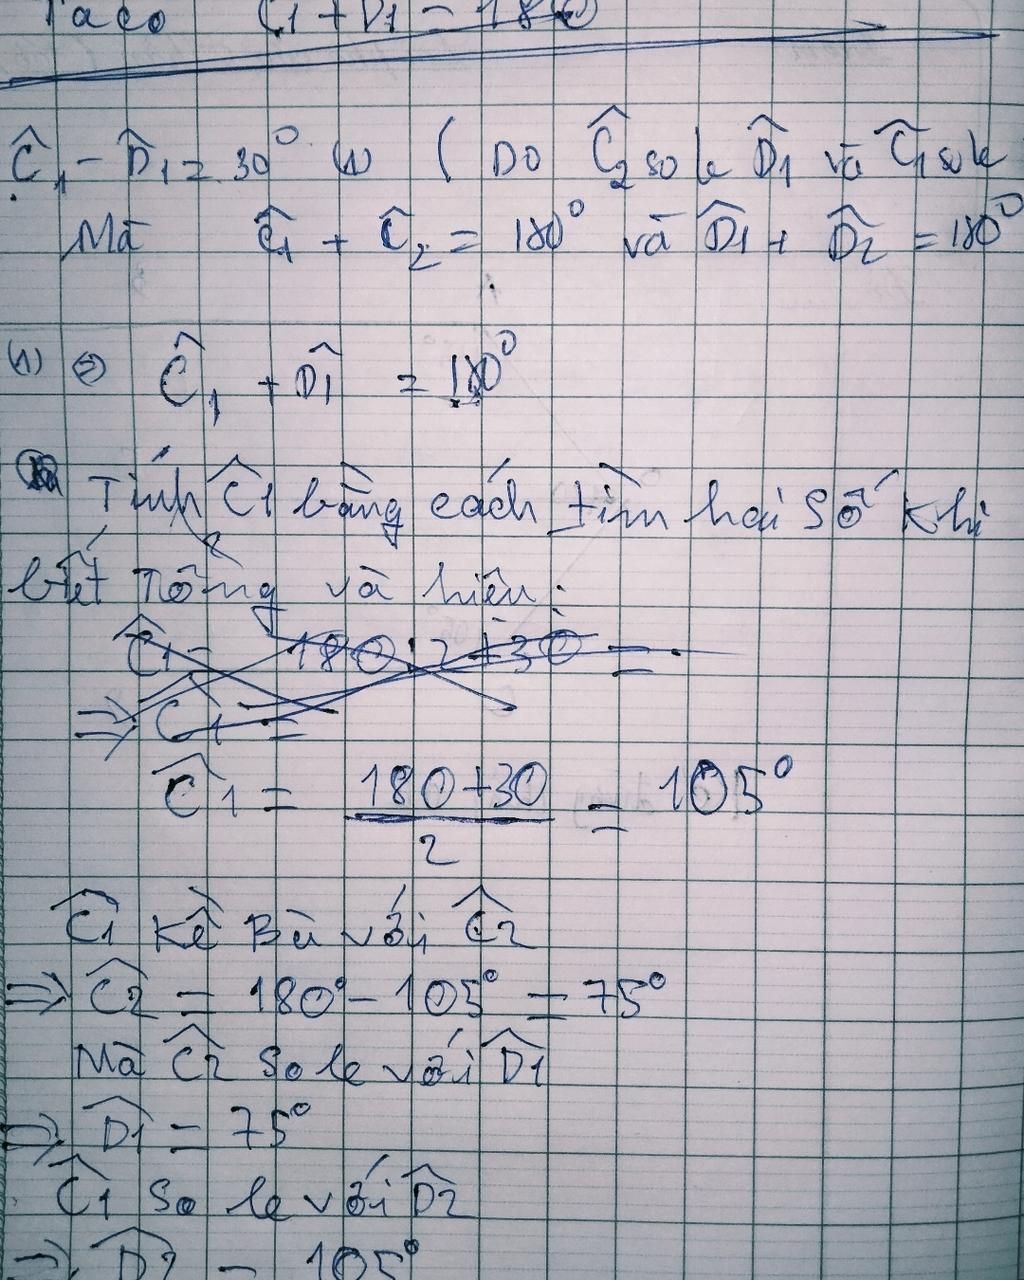 Ta có Ĉ1 + D̂1 = 180
Ĉ1 - D̂1 = 30° (1) ( Do Ĉ2 so le D̂1 và Ĉ1 so le
Mà Ĉ1 + Ĉ2 = 180° và D̂1 + D̂2 = 180°
(1) ⇒ Ĉ1 + D̂1 = 180°
Tính Ĉ1 bằng cách tìm hai số khi
biết Tổng và hiệu :
Ĉ1 = 180 : 2 + 30 =
⇒ Ĉ1 =
Ĉ1 = (180+30)/2 = 105°
Ĉ1 Kề Bù với Ĉ2
⇒ Ĉ2 = 180° - 105° = 75°
Mà Ĉ2 So le với D̂1
⇒ D̂1 = 75°
Ĉ1 So le với D̂2
⇒ D̂2 = 105°